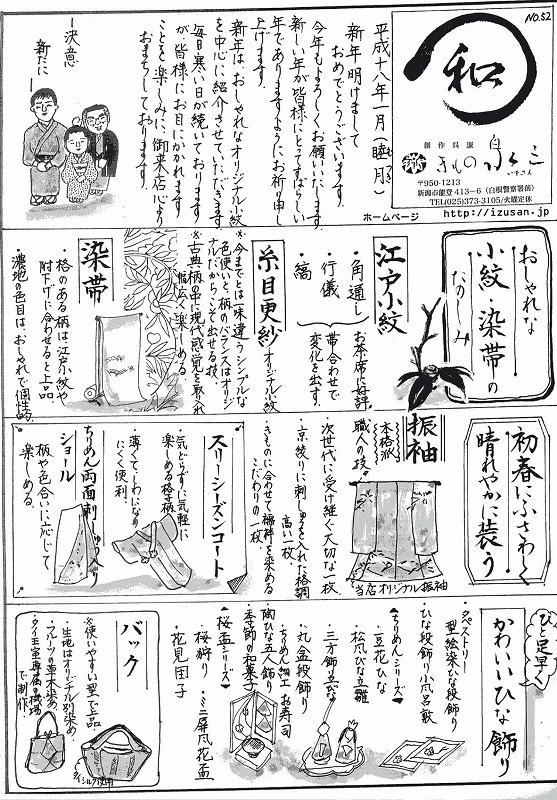 NO.52
和
創作呉服
きもの泉三
いずさん
〒950-1213
新潟市能登413-6(白根警察署前)
TEL(025)373-3105/火曜定休
ホームページ http://izusan.jp
平成十八年一月(睦月)
新年明けまして
おめでとうございます。
今年もよろしくお願いいたします。
新しい年が皆様にとってすばらしい
年でありますようにお祈り申し
上げます。
新年は、おしゃれなオリジナル小紋
を中心に紹介させていただきます。
毎日寒い日が続いております
が、皆様にお目にかかれます
ことを楽しみに、御来店心より
おまちしております。
―決意
新たに―
おしゃれな
小紋・染帯の
たのしみ
江戸小紋
お茶席に好評
・角通し
・行儀
・縞
帯合わせで
変化を出す。
糸目更紗
オリジナル小紋
・今までとは一味違うシンプルな
色使いと、柄のバランスはオリジ
ナルだからこそ出せる技。
※古典柄の中に現代感覚を取り入れ
幅広く楽しめる
染帯
・格のある柄は江戸小紋や
附下げに合わせると上品。
・濃地の色目は、おしゃれで個性的。
初春にふさわしく
晴れやかに装う
振袖
本格派
職人の技。
次世代に受け継ぐ大切な一枚
・京絞りに刺しゅうを入れた格調
高い一枚。
・きものに合わせて襦袢を染める
こだわりの一枚。
当店オリジナル振袖
スリーシーズンコート
気どらずに気軽に
楽しめる格子柄
・薄くてしわになり
にくく便利
ちりめん両面刺しゅう入り
ショール
柄や色合いに応じて
楽しめる。
ひと足早く
かわいいひな飾り
・タペストリー
型絵染ひな段飾り
・ひな段飾り小風呂敷
◆ちりめんシリーズ◆
・豆花ひな
・松風ひな立雛
・三方飾り豆びな
・丸盆段飾り
・ちりめん細工 お寿司
・陶ひな五人飾り
・季節の和菓子
◆桜盃シリーズ◆
桜狩り
・ミニ屏風花盃
花見団子
バック
※使いやすい型で上品。
・生地はオリジナル別染め
・フルーツの草木染め
・タイ王室専属の機場
で制作
タイシルク使用